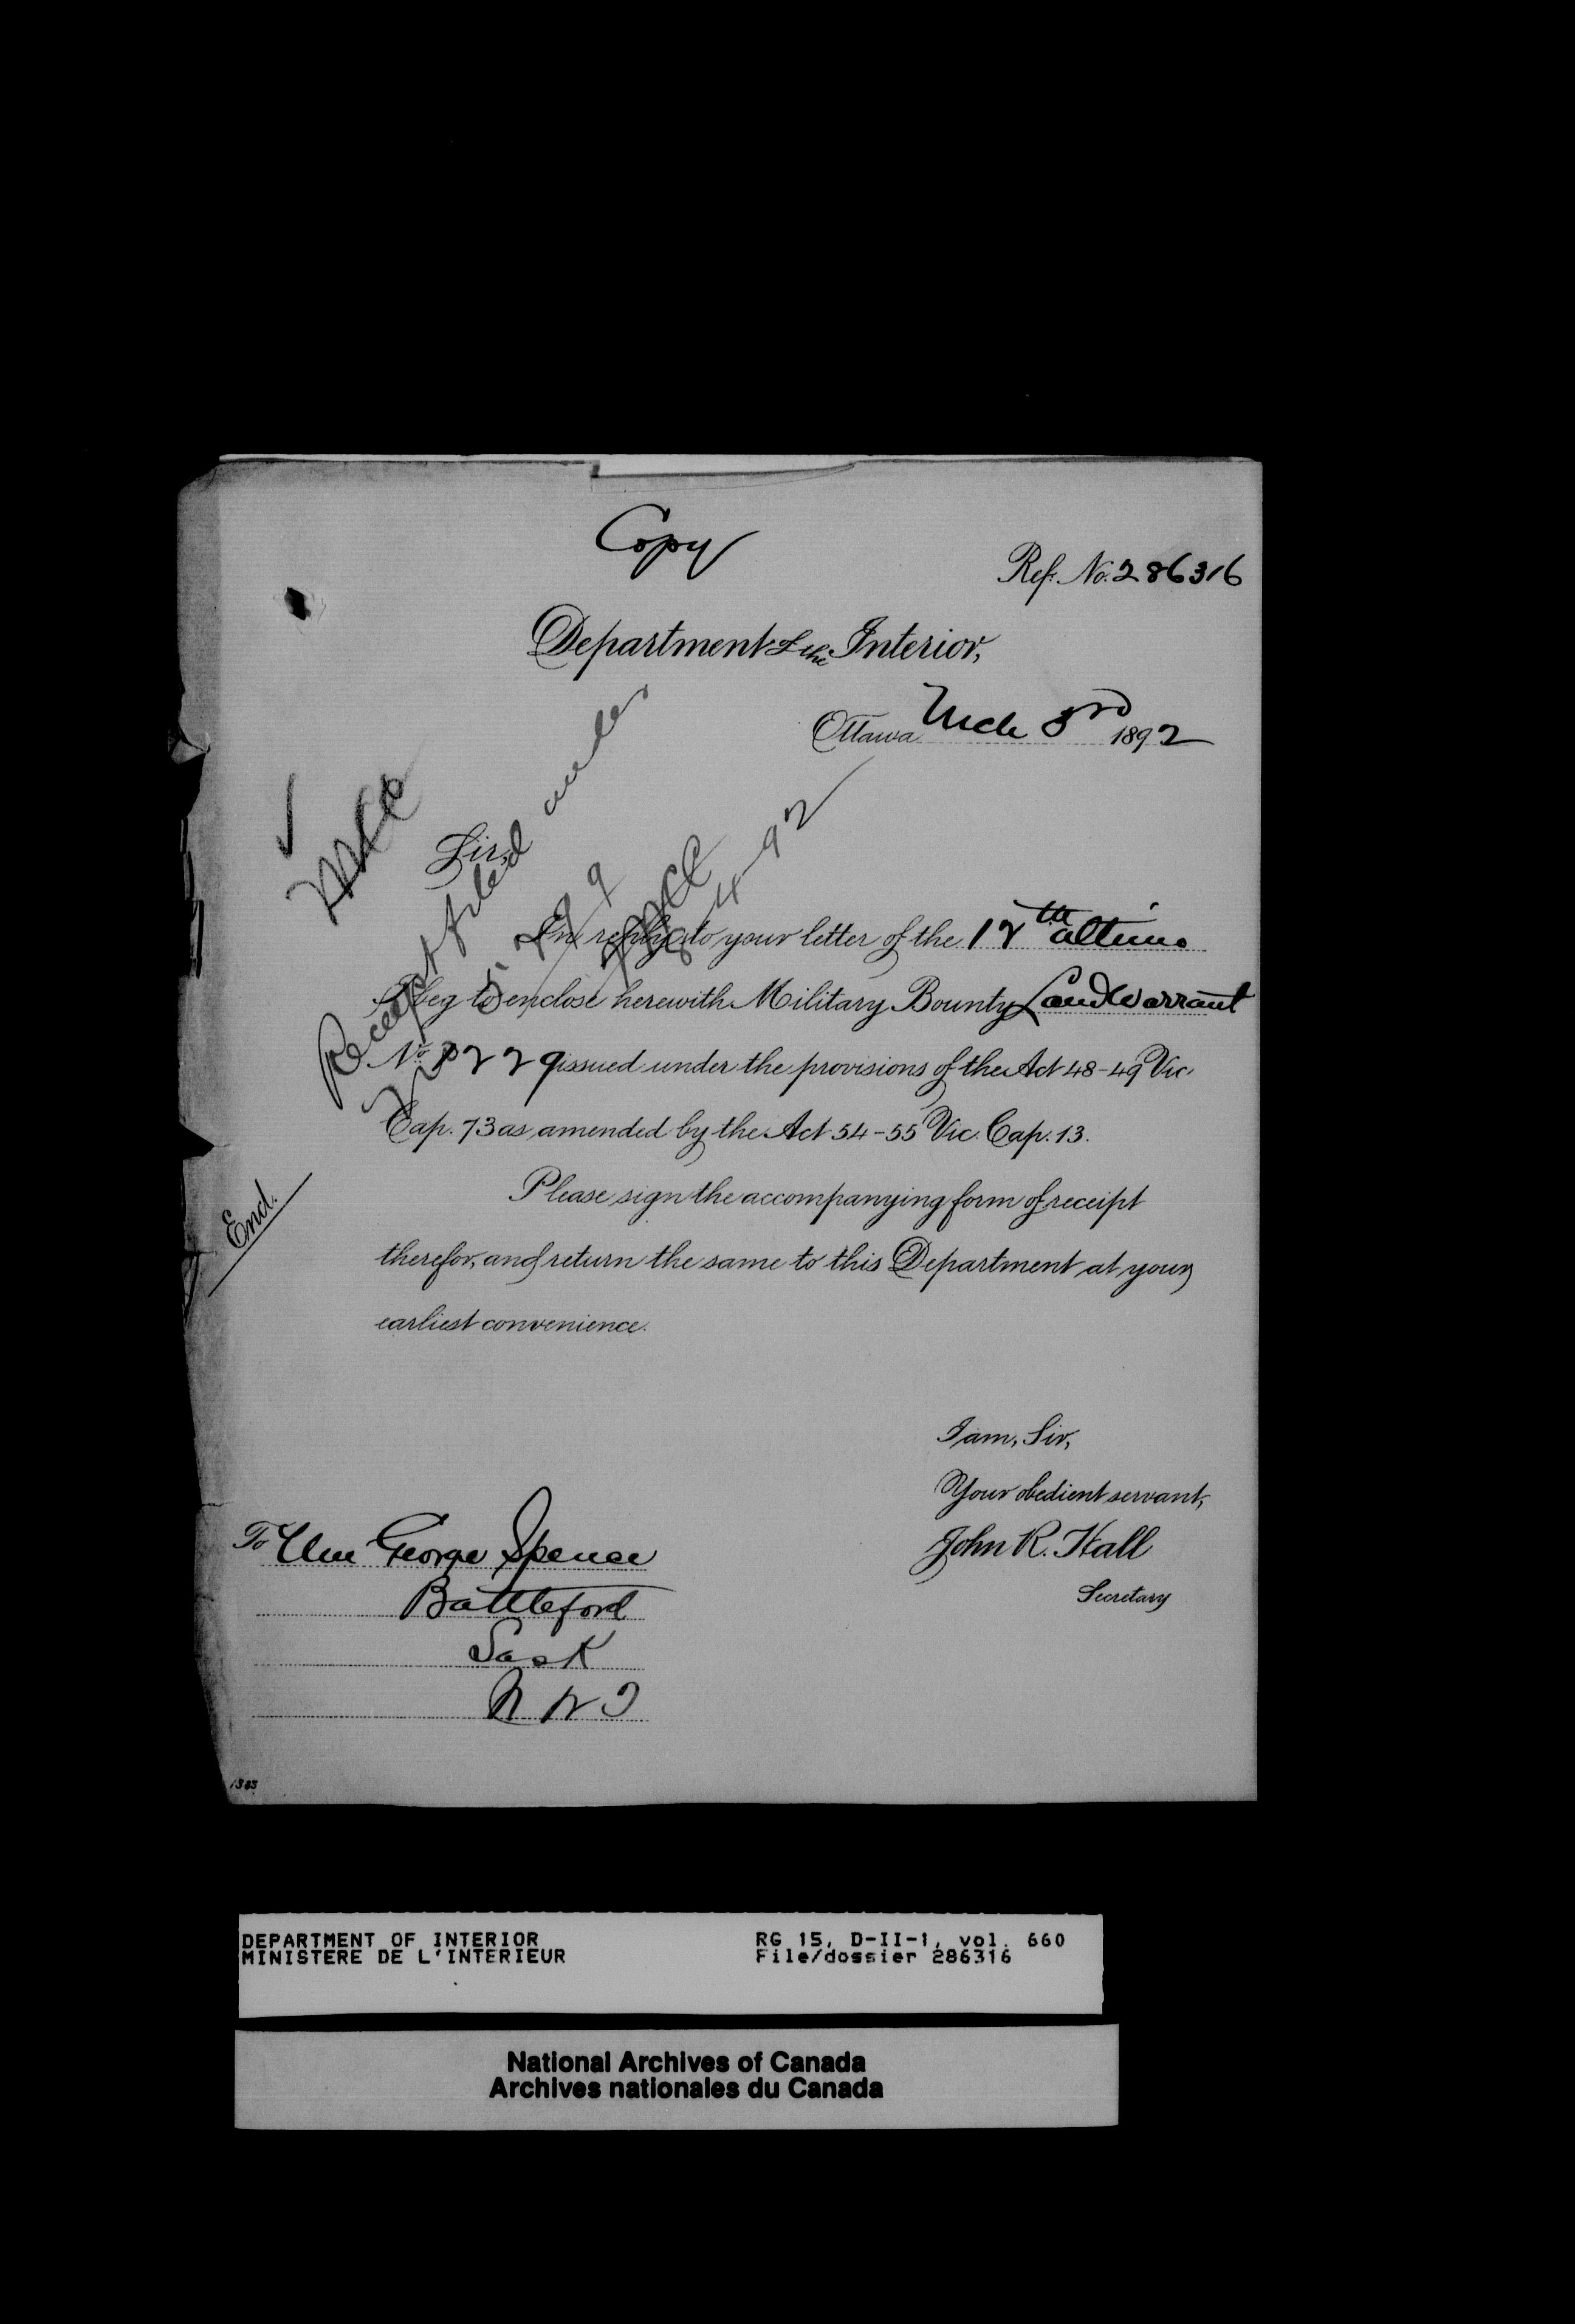 Copy
Ref. No. 286316
Department of the Interior,
Ottawa Mch 3rd 1892
Sir,
In reply to your letter of the 12th ultimo
I beg to enclose herewith Military Bounty Land Warrant
No issued under the provisions of the Act 48-49 Vic.
Cap. 73 as amended by the Act 54-55 Vic. Cap. 13.
Please sign the accompanying form of receipt
therefor, and return the same to this Department at your
earliest convenience.
Encl.
Receipt filed under
4-92
I am, Sir,
Your obedient servant,
John R. Hall
Secretary
To Wm George Spence
Battleford
Sask
N W T
1383
DEPARTMENT OF INTERIOR
MINISTERE DE L'INTERIEUR
RG 15, D-II-1, vol. 660
File/dossier 286316
National Archives of Canada
Archives nationales du Canada